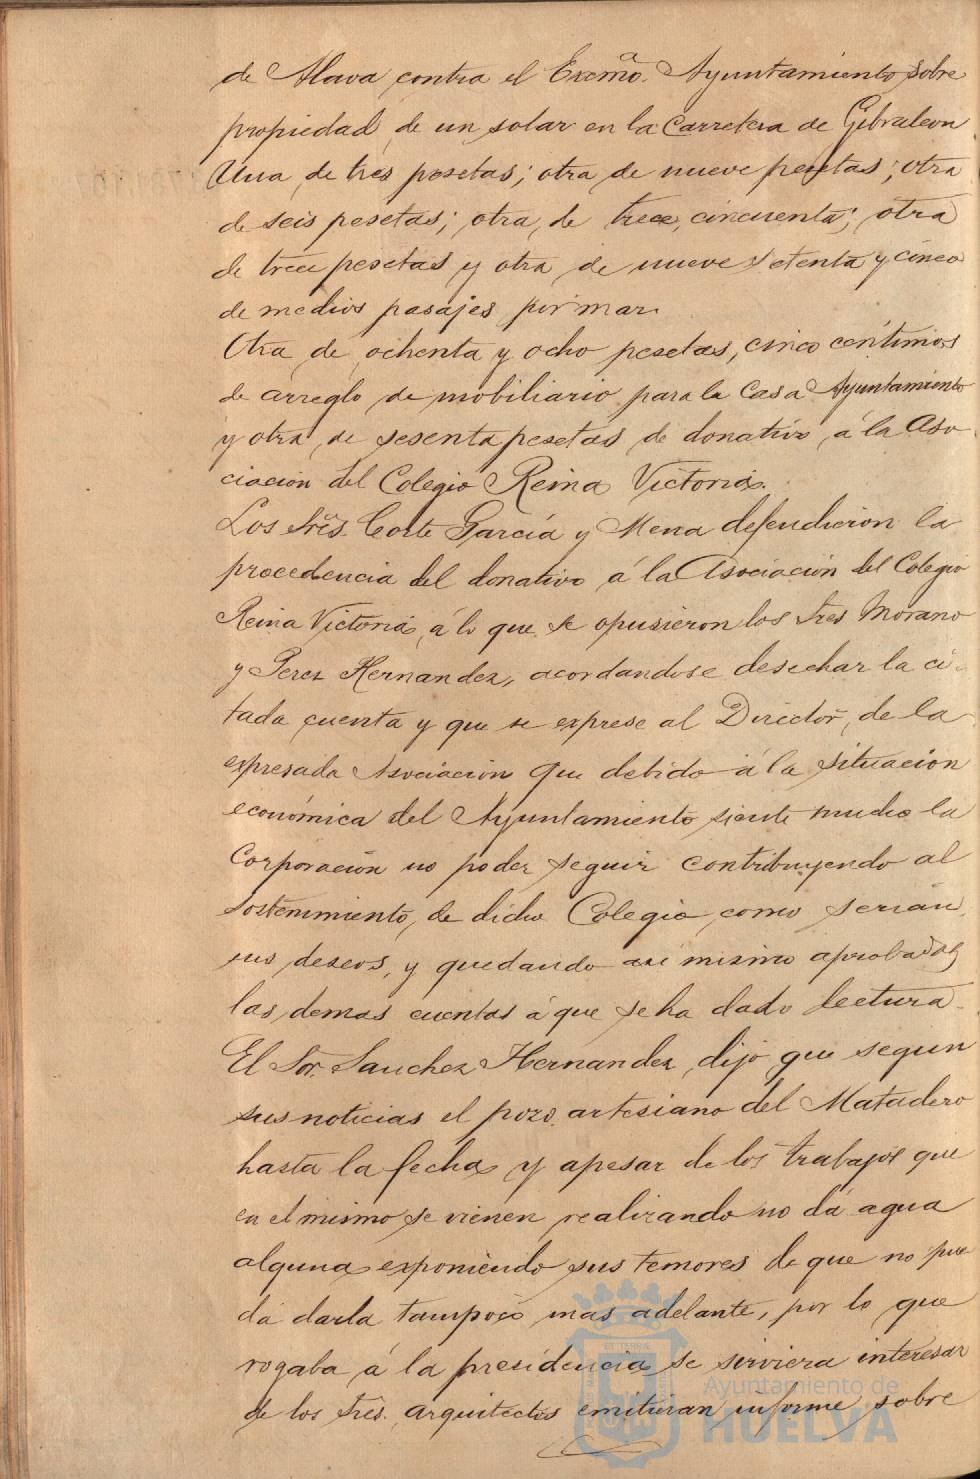 de Alava contra el Excmo. Ayuntamiento sobre
propiedad de un solar en la Carretera de Gibraleon
Una de tres pesetas; otra de nueve pesetas; otra
de seis pesetas; otra, de trece, cincuenta; otra
de trece pesetas y otra de nueve setenta y cinco
de medios pasajes por mar.
Otra de ochenta y ocho pesetas, cinco centimos
de arreglo de mobiliario para la Casa Ayuntamiento
y otra, de sesenta pesetas de donativo, á la Aso-
ciación del Colegio Reina Victoria.
Los Sres. Corte García y Mena defendieron la
procedencia del donativo á la Asociación del Colegio
Reina Victoria, á lo que se opusieron los Sres Morano
y Perez Hernandez, acordandose desechar la ci-
tada cuenta y que se exprese al Director, de la
expresada Asociación que debido á la situacion
económica del Ayuntamiento siente mucho la
Corporación no poder seguir contribuyendo al
sostenimiento, de dicho Colegio como serían
sus deseos, y quedando asi mismo aprobadas
las demas cuentas á que se ha dado lectura.
El Sor. Sanchez Hernandez, dijo que segun
sus noticias el pozo artesiano del Matadero
hasta la fecha y apesar de los trabajos que
en el mismo se vienen realizando no dá agua
alguna exponiendo sus temores de que no pue
da darla tampoco mas adelante, por lo que
rogaba á la presidencia se sirviera interesar
de los Sres. arquitectos emitieran informe sobre
Ayuntamiento de
HUELVA